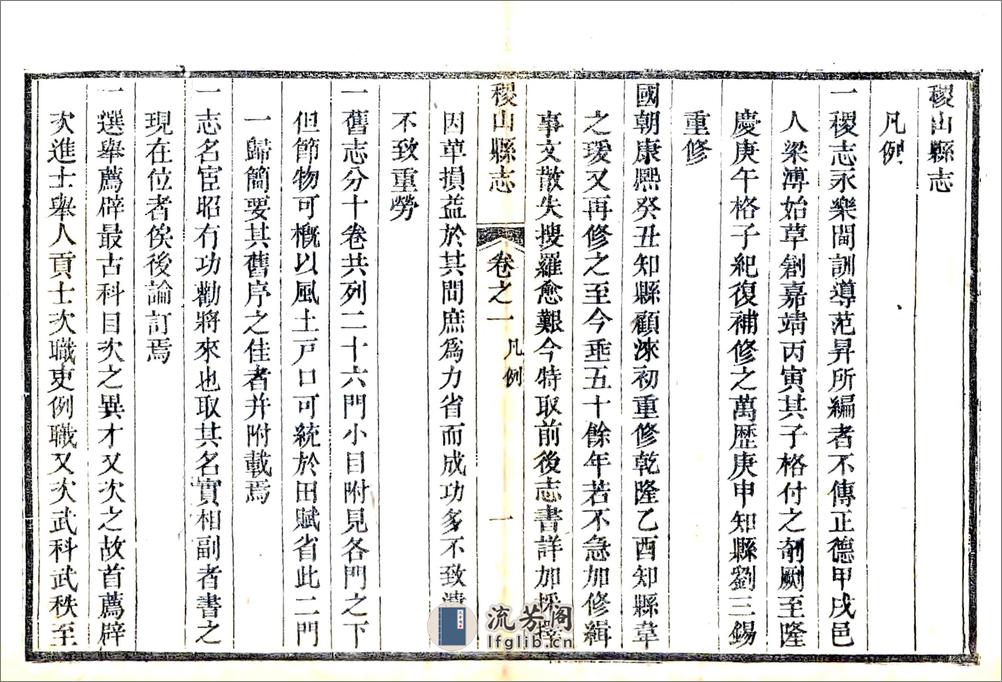 稷山縣志
凡例
一稷志永樂間訓導范昇所編者不傳正德甲戌邑
人梁溥始草創嘉靖丙寅其子格付之剞劂至隆
慶庚午格子紀復補修之萬歷庚申知縣劉三錫
重修
國朝康熙癸丑知縣顧涞初重修乾隆乙酉知縣韋
之瑗又再修之至今垂五十餘年若不急加修緝
事文散失搜羅愈艱今特取前後志書詳加採擇
稷山縣志
卷之一
凡例
一
因革損益於其間庶爲力省而成功多不致
不致重勞
一舊志分十卷共列二十六門小目附見各門之下
但節物可概以風土戶口可統於田賦省此二門
一歸簡要其舊序之佳者并附載焉
一志名宦昭有功勸將來也取其名實相副者書之
現在位者俟後論訂焉
一選舉薦辟最古科目次之異才又次之故首薦辟
次進士舉人貢士次職吏例職又次武科武秩至
流芳閣
lfglib.cn